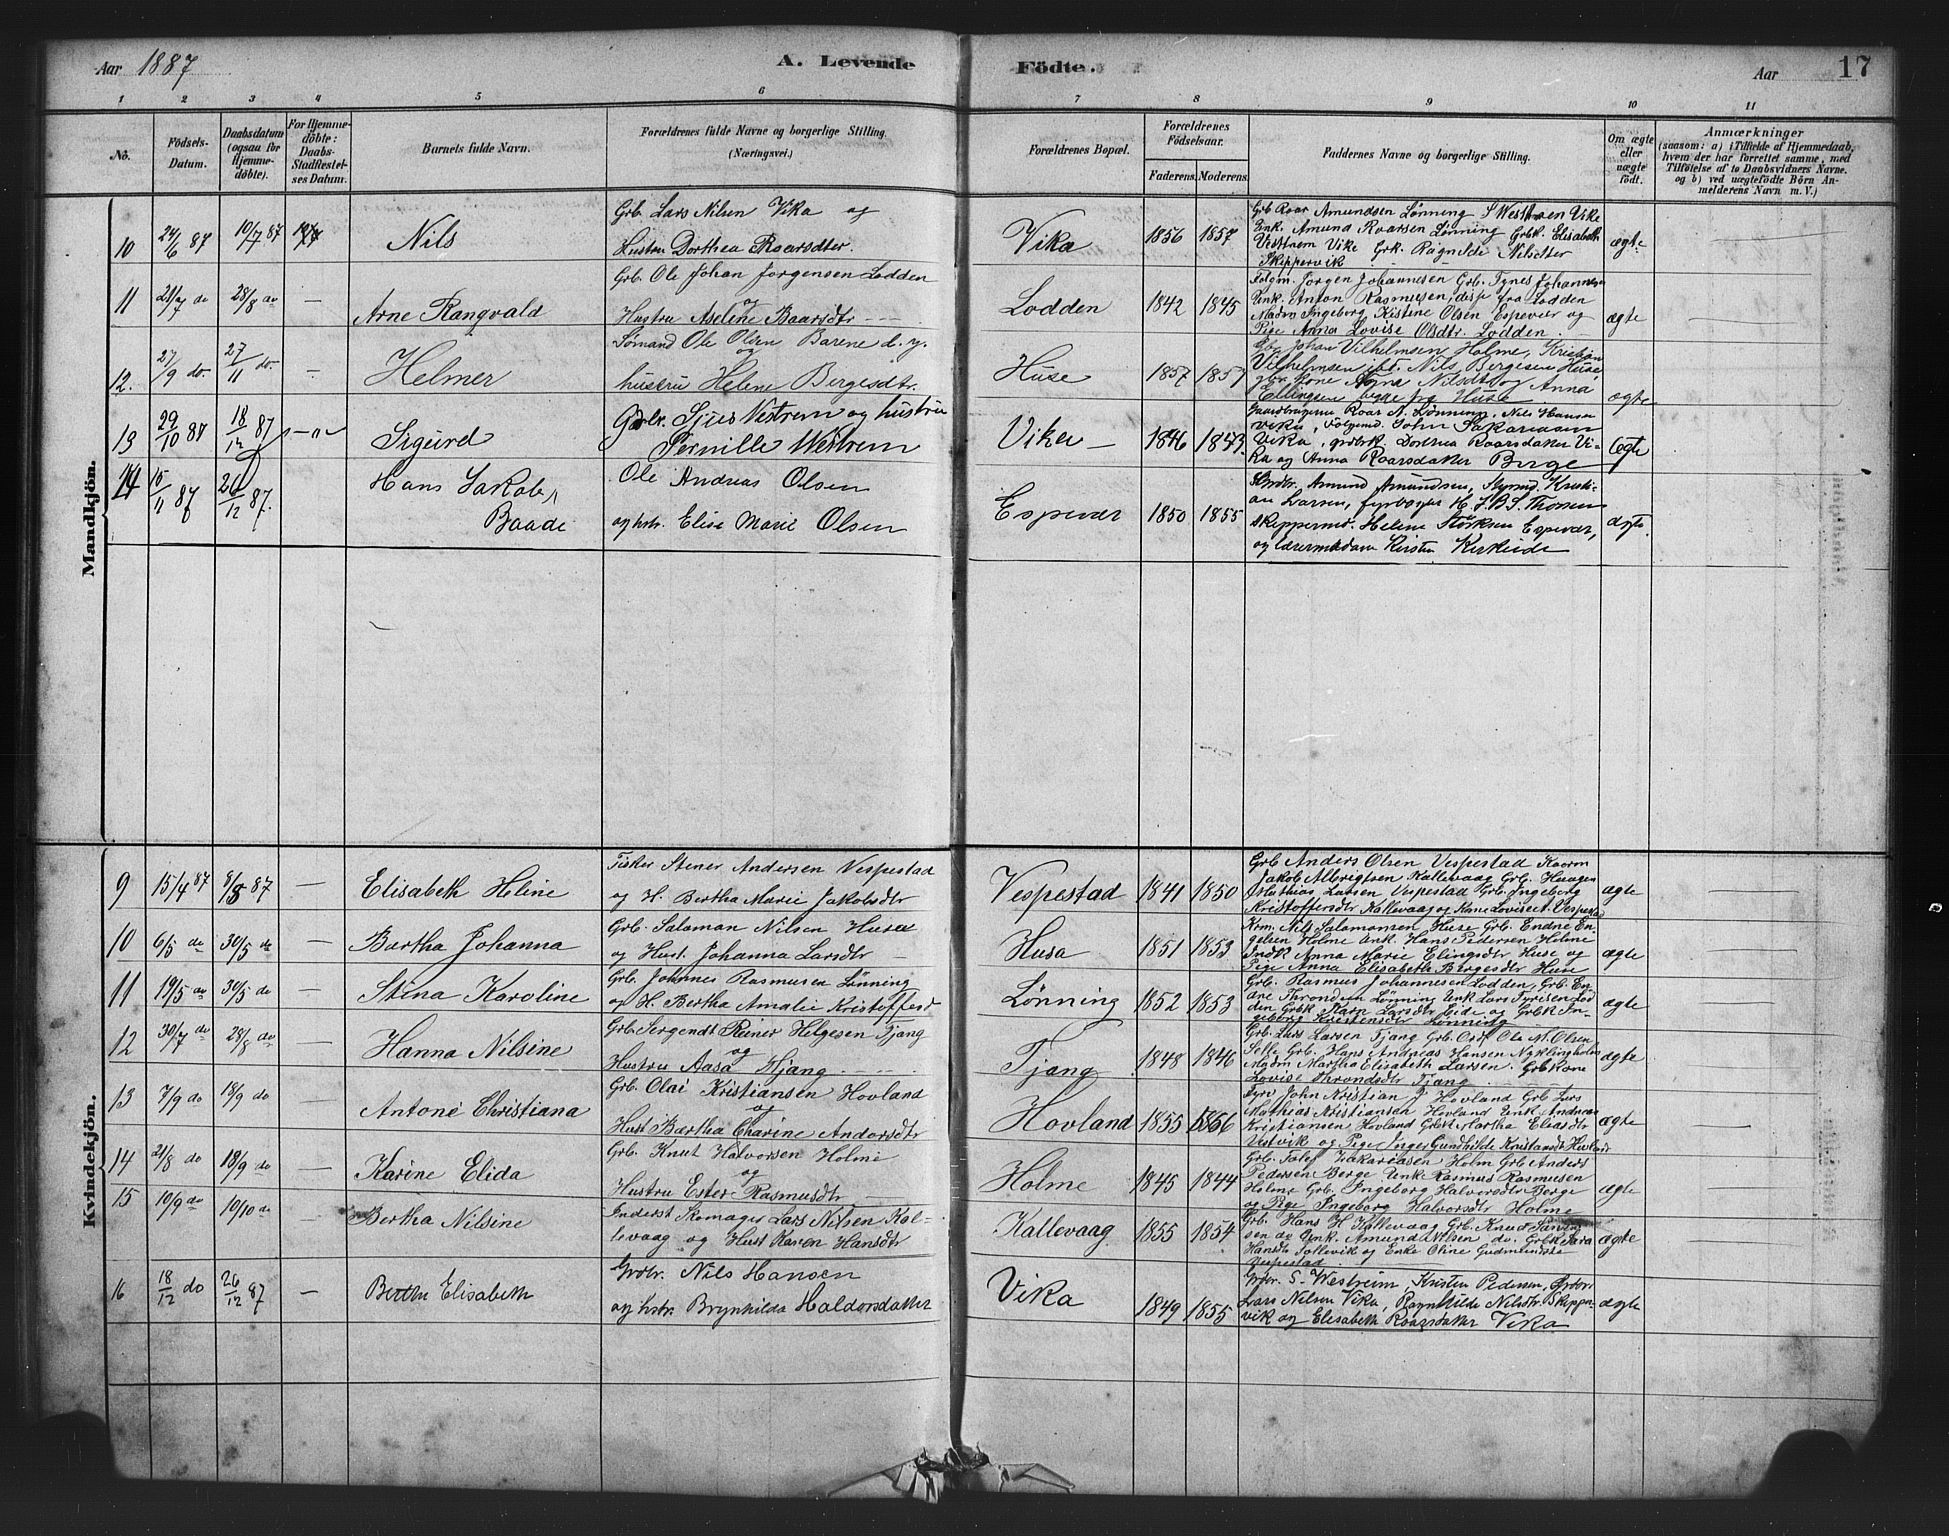 Aar 1887
A. Levende Födte.
Aar 17
1 2 3 4 5 6 7 8 9 10 11
No.
Födsels-Datum.
Daabsdatum (ogsaa for Hjemmedöbte).
For Hjemmedöbte: Daabs-Stadfestelses Datum.
Barnets fulde Navn.
Forældrenes fulde Navne og borgerlige Stilling. (Næringsvei.)
Forældrenes Bopæl.
Forældrenes Födselsaar.
Faderens. Moderens.
Faddernes Navne og borgerlige Stilling.
Om ægte eller uægte födt.
Anmærkninger
(saasom: a) i Tilfælde af Hjemmedaab, hvem der har forrettet samme, med Tilföielse af to Daabsvidners Navne. og b) ved uægtefödte Börn Anmelderens Navn m. V.)
Mandkjön.
10 24/6 87 10/7 87 Nils
Grb. Lars Nilsen Vika og
Hustru Dorthea Roarsdter
Vika 1856 1857
Grb Roar Amundsen Lønning S Westræn Vike
Unk. Amund Roarsen Lønning Grbk. Elisabeth
Vestrem Vike Grk. Ragnilde Nilsdtter
Skippervik
ægte
11 21/7 do 28/8 do — Arne Rangvald
Grb. Ole Johan Jorgensen Lodden
og
Hustru Aselene Baarsdtr
Lodden 1842 1845
Folgm. Jorgen Johannesen Grb. Tynes Johannesen
Unk. Anton Rasmusen, disse fra Lodden
Madm Ingeborg Kistine Olsen Espevær og
Pige Anna Lovise Olsdtr. Lodden.
ægte
12. 27/9 do. 27/11 do. — Helmer
Sømand Ole Olsen Barene d. y.
og
hustru Helene Bergesdtr.
Huse 1857 1857
Gb. Johan Vilhelmsen Holme, Kristian
Vilhelmsen ibt. Nils Bergesen Huse
gbr. kone Agna Nilsdt og Anna
Ellingsen begge fra Huse
ægte
13 29/10 87 18/12 87 Sigurd
Gbr. Sjurs Vestrem og hustru
Pernille Westrem
Vika 1846 1843.
Gaardbrugerne Roar A. Lønning, Nils Hansen
Vika, Folgemd. John Sakariasen
Vika, grdbrk. Dorthea Roarsdatter Vi-
ka og Anna Roarsdatter Berge
Ægte
14 15/11 87 26/12 87. Hans Jakob
Baade
Ole Andreas Olsen
og hstr. Elise Marie Olsen
Espevær 1850 1855
Grdbr. Amund Amundsen, Styrmd. Kristi-
an Larsen, fyrvogter H. J. B. S. Thomsen
skippermd. Helene Størksen Espevær,
og lærermadam Kirsten Kirkeide
ægte.
Kvindekjön.
9 15/4 87 8/5 87 — Elisabeth Heline
Fisker Stener Andersen Vespestad
og H. Bertha Marie Jakobsdtr
Vespestad 1841 1850
Grb Anders Olsen Vespestad Kaarm
Jakob Albrigtsen Kallevaag Grb. Haagen
Mathias Larsen Vespestad Grb. Ingeborg
Kristoffersdtr Kallevaag og Kone Lovise t. Vespestad
ægte
10 6/5 do 30/5 do — Bertha Johanna
Grb. Salaman Nilsen Husa
og Hust. Johanna Larsdtr
Husa 1851 1853
Krm. Nils Salamonsen Huse Grb. Endre En-
gelsen Holme Unk. Hans Pedersen Holme
Indk Anna Marie Elingsdtr Huse og
Pige Anna Elisabeth Bergesdtr Huse
ægte
11 19/5 do 30/5 do — Stina Karoline
Grb. Johanes Rasmusen Lønning
og H. Bertha Amalie Kristoffersd
Lønning 1852 1853
Grb. Rasmus Johannesen Lodden, Grb. En-
dre Throndsen Lønning Unk Lars Tyrisen Lod
den Grbk Karn Larsdtr Eide og Grbk In-
geborg Kristensdtr Lønning
ægte
12 30/7 do 28/8 do — Hanna Nilsine
Grb. Sergendt Reiner Helgesen Tjang
og
Hustru Aasa Tjang
Tjang 1848 1846
Grb. Lars Larsen Tjang Grb. Ordf. Ole M. Olsen
Selle Grb. Hans Andreas Hansen Nyklingholm
Madm Martha Elisabeth Larsen. Grbkone
Lovise Throndsdtr Tjang
ægte
13 7/9 do 18/9 do — Antone Christiana
Grb. Olai Kristiansen Hovland
og
Hust Bertha Charine Andorsdtr
Hovland 1855 1866
Fyrv John Kristian J Hovland Grb Lars
Mathias Kristiansen Hovland Unk Andreas
Kristiansen Hovland Grbk Martha Eliasdtr
Vestvik og Pige Inger Gundhilde Kristiansdt Hovland
ægte
14 21/8 do 18/9 do — Karine Elida
Grb. Knut Halvorsen Holme
og
Hustru Ester Rasmusdtr
Holme 1845 1844
Grb. Tolef Zakariasen Holm Grb Anders
Pedersen Berge Unk Rasmus Rasmusen
Holme Grb. Ingeborg Halvorsdtr Berge
og Pige Ingeborg Halvorsdtr Holme
ægte
15 10/9 do 10/10 do — Bertha Nilsine
Inderst Skomager Lars Nilsen Kal-
levaag og Hust Karen Hansdtr
Kallevaag 1855 1854
Grb. Hans H Kallevaag Grb. Knud Søren
sen do Unk. Amund Nilsen do. Grbk Sara
Hansdtr Tollevik og Enke Oline Gudmundsdtr
Vespestad
ægte
16 18/12 do 26/12 87 — Berthe Elisabeth
Grdbr. Nils Hansen
og hstr. Brynhilda Haldorsdatter
Vika 1849 1855
Grdbr. S. Westreim, Kristen Pedersen, Grdbr.
Lars Nilsen Vika, Ragnhilde Nilsdtr. Skipper-
vik og Elisabeth Roarsdatter Vika
ægte